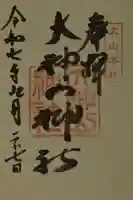 奉拝
大神山神社
令和七年九月二十七日